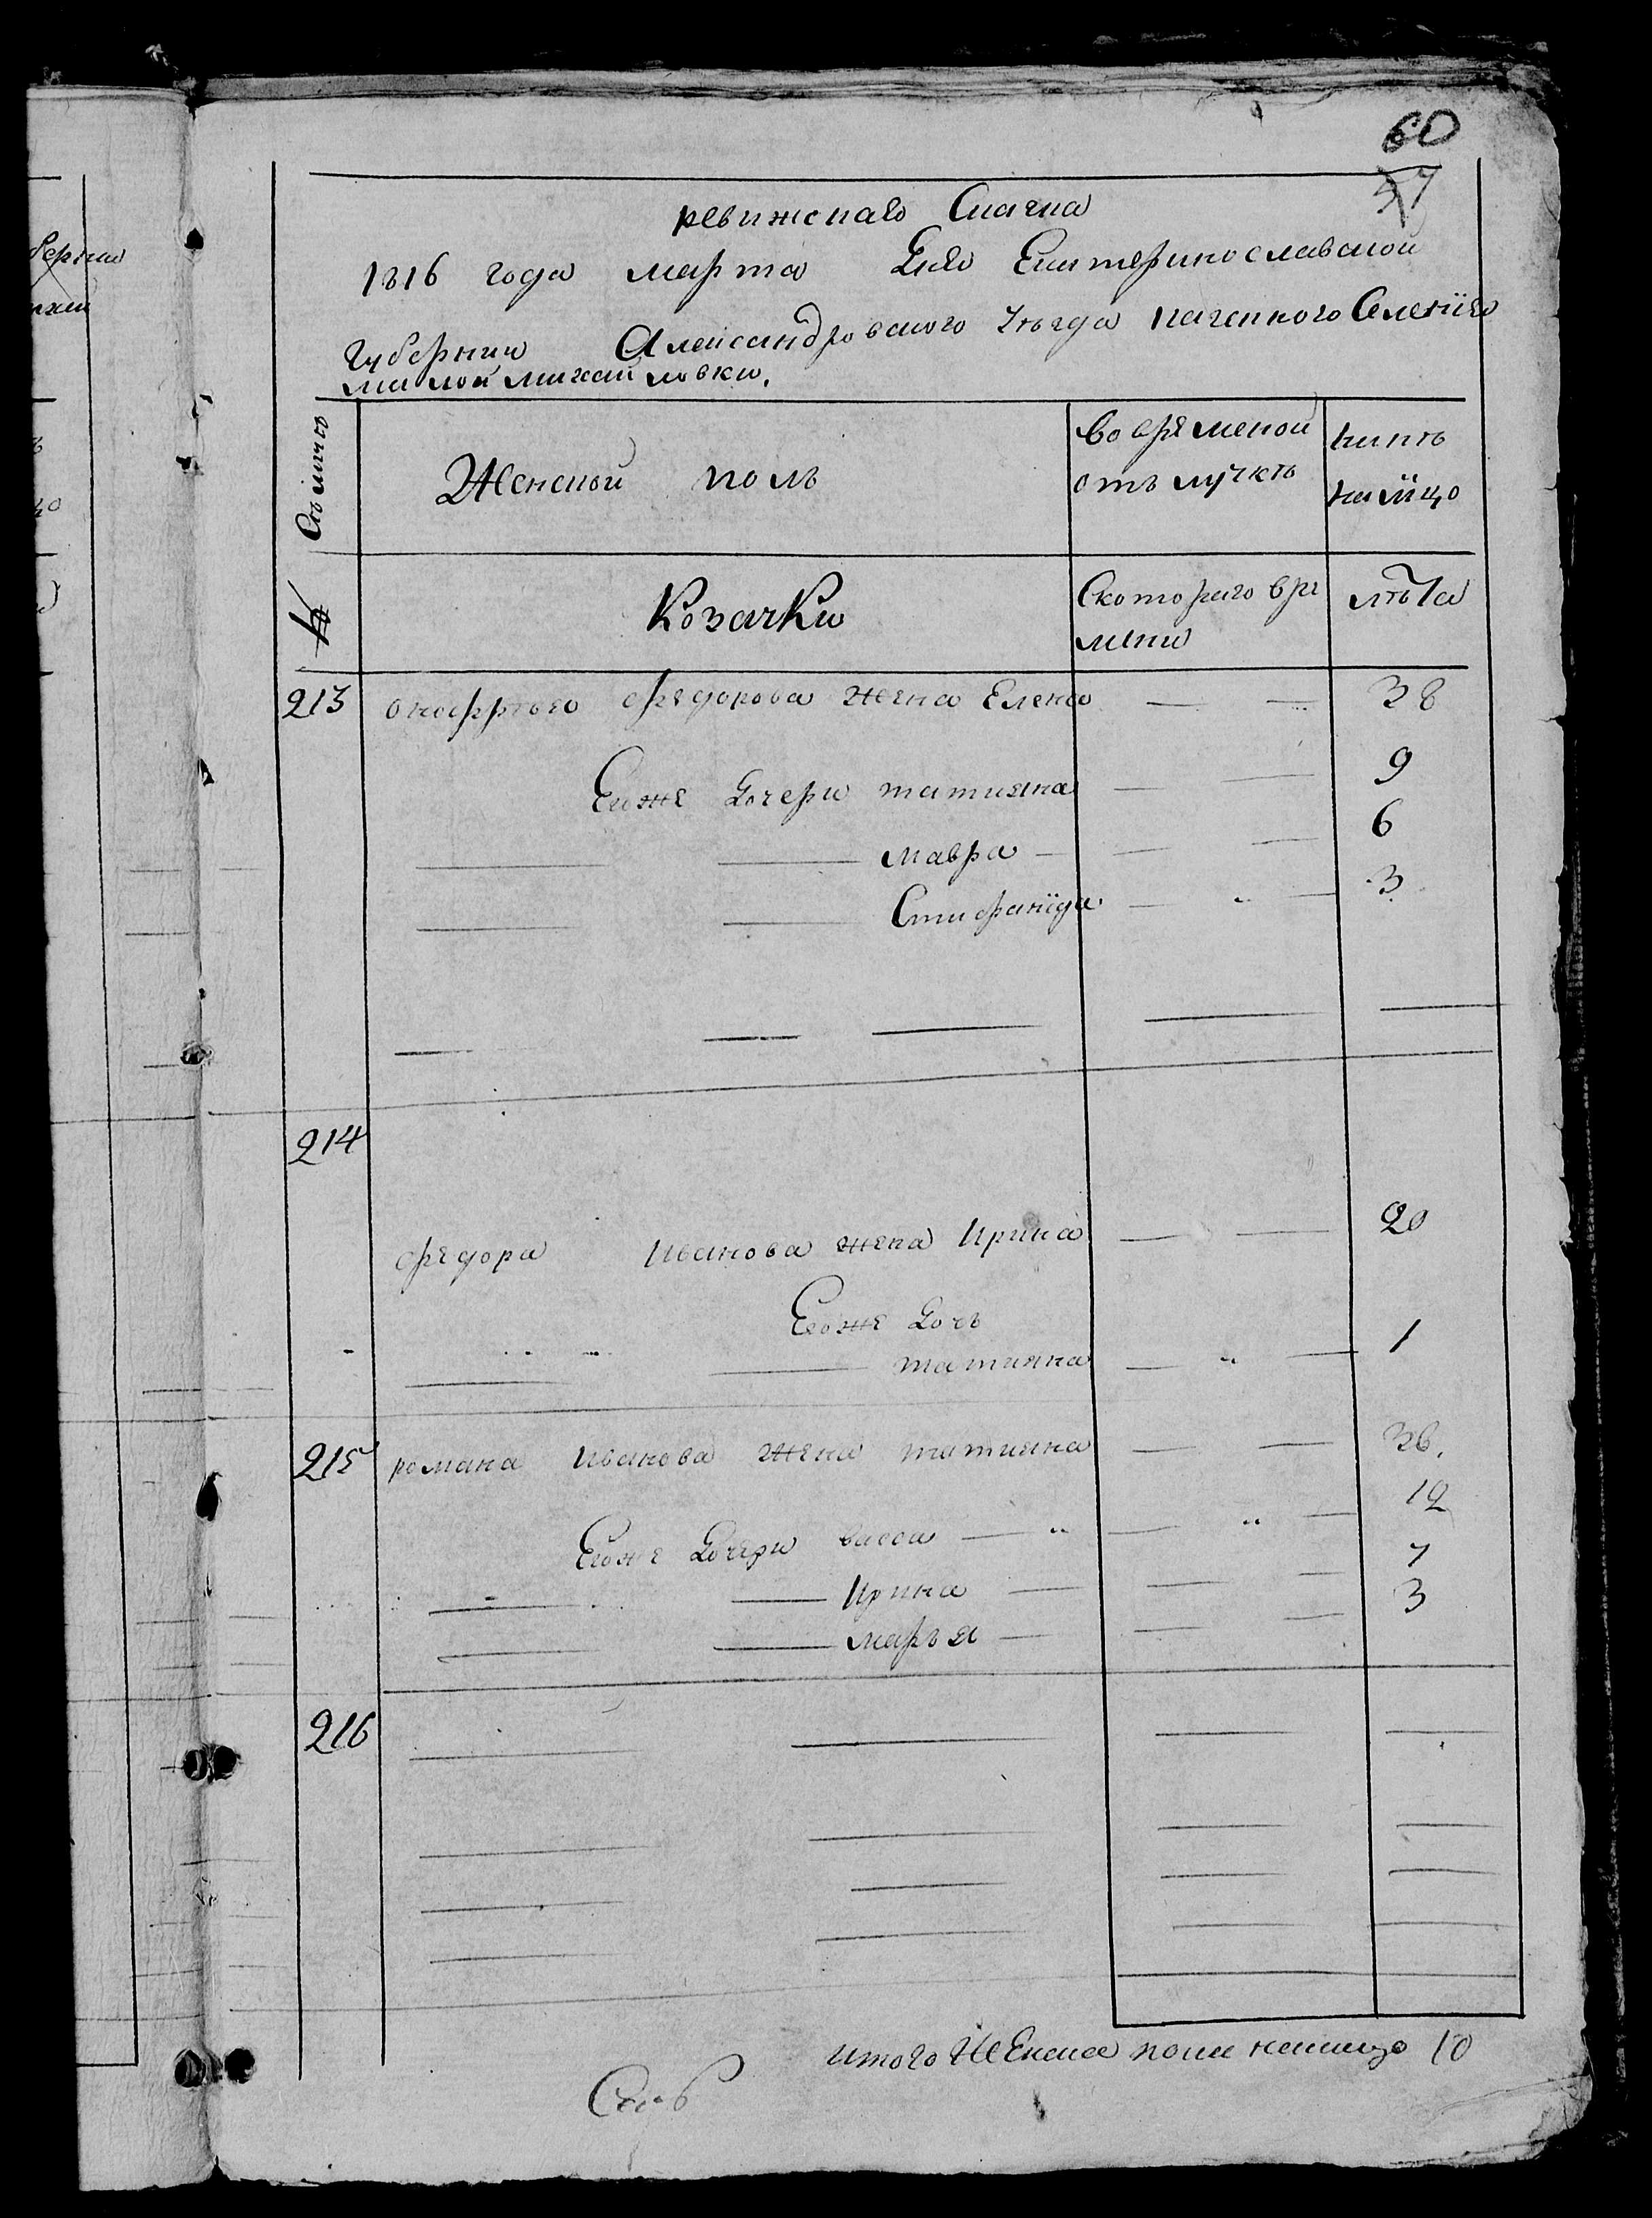 60
57
ревижскаго Скаска
1816 года марта Дня Екатеринославской
Губернии Александровского уѣзда казенного Селенiя
малой михайловки.
Семьи
Женской полъ
во временой отълучкѣ
нынѣ налицо
№
Козачки
Скоторого времени
лѣта
213 онофрѣя федорова жена Елена — — 38
Еяже Дочери татияна — — 9
— — мавра — — — 6
— — Стифанида — — 3
214
федора Иванова жена Ирина — — 20
Егоже Дочь
— — татияна — — 1
215 романа Иванова жена татияна — — 36.
Егоже Дочери васса — — — 12
— — Ирина — — — 7
— — марья — — — 3
216
итого Женска пола налицо 10
бернии